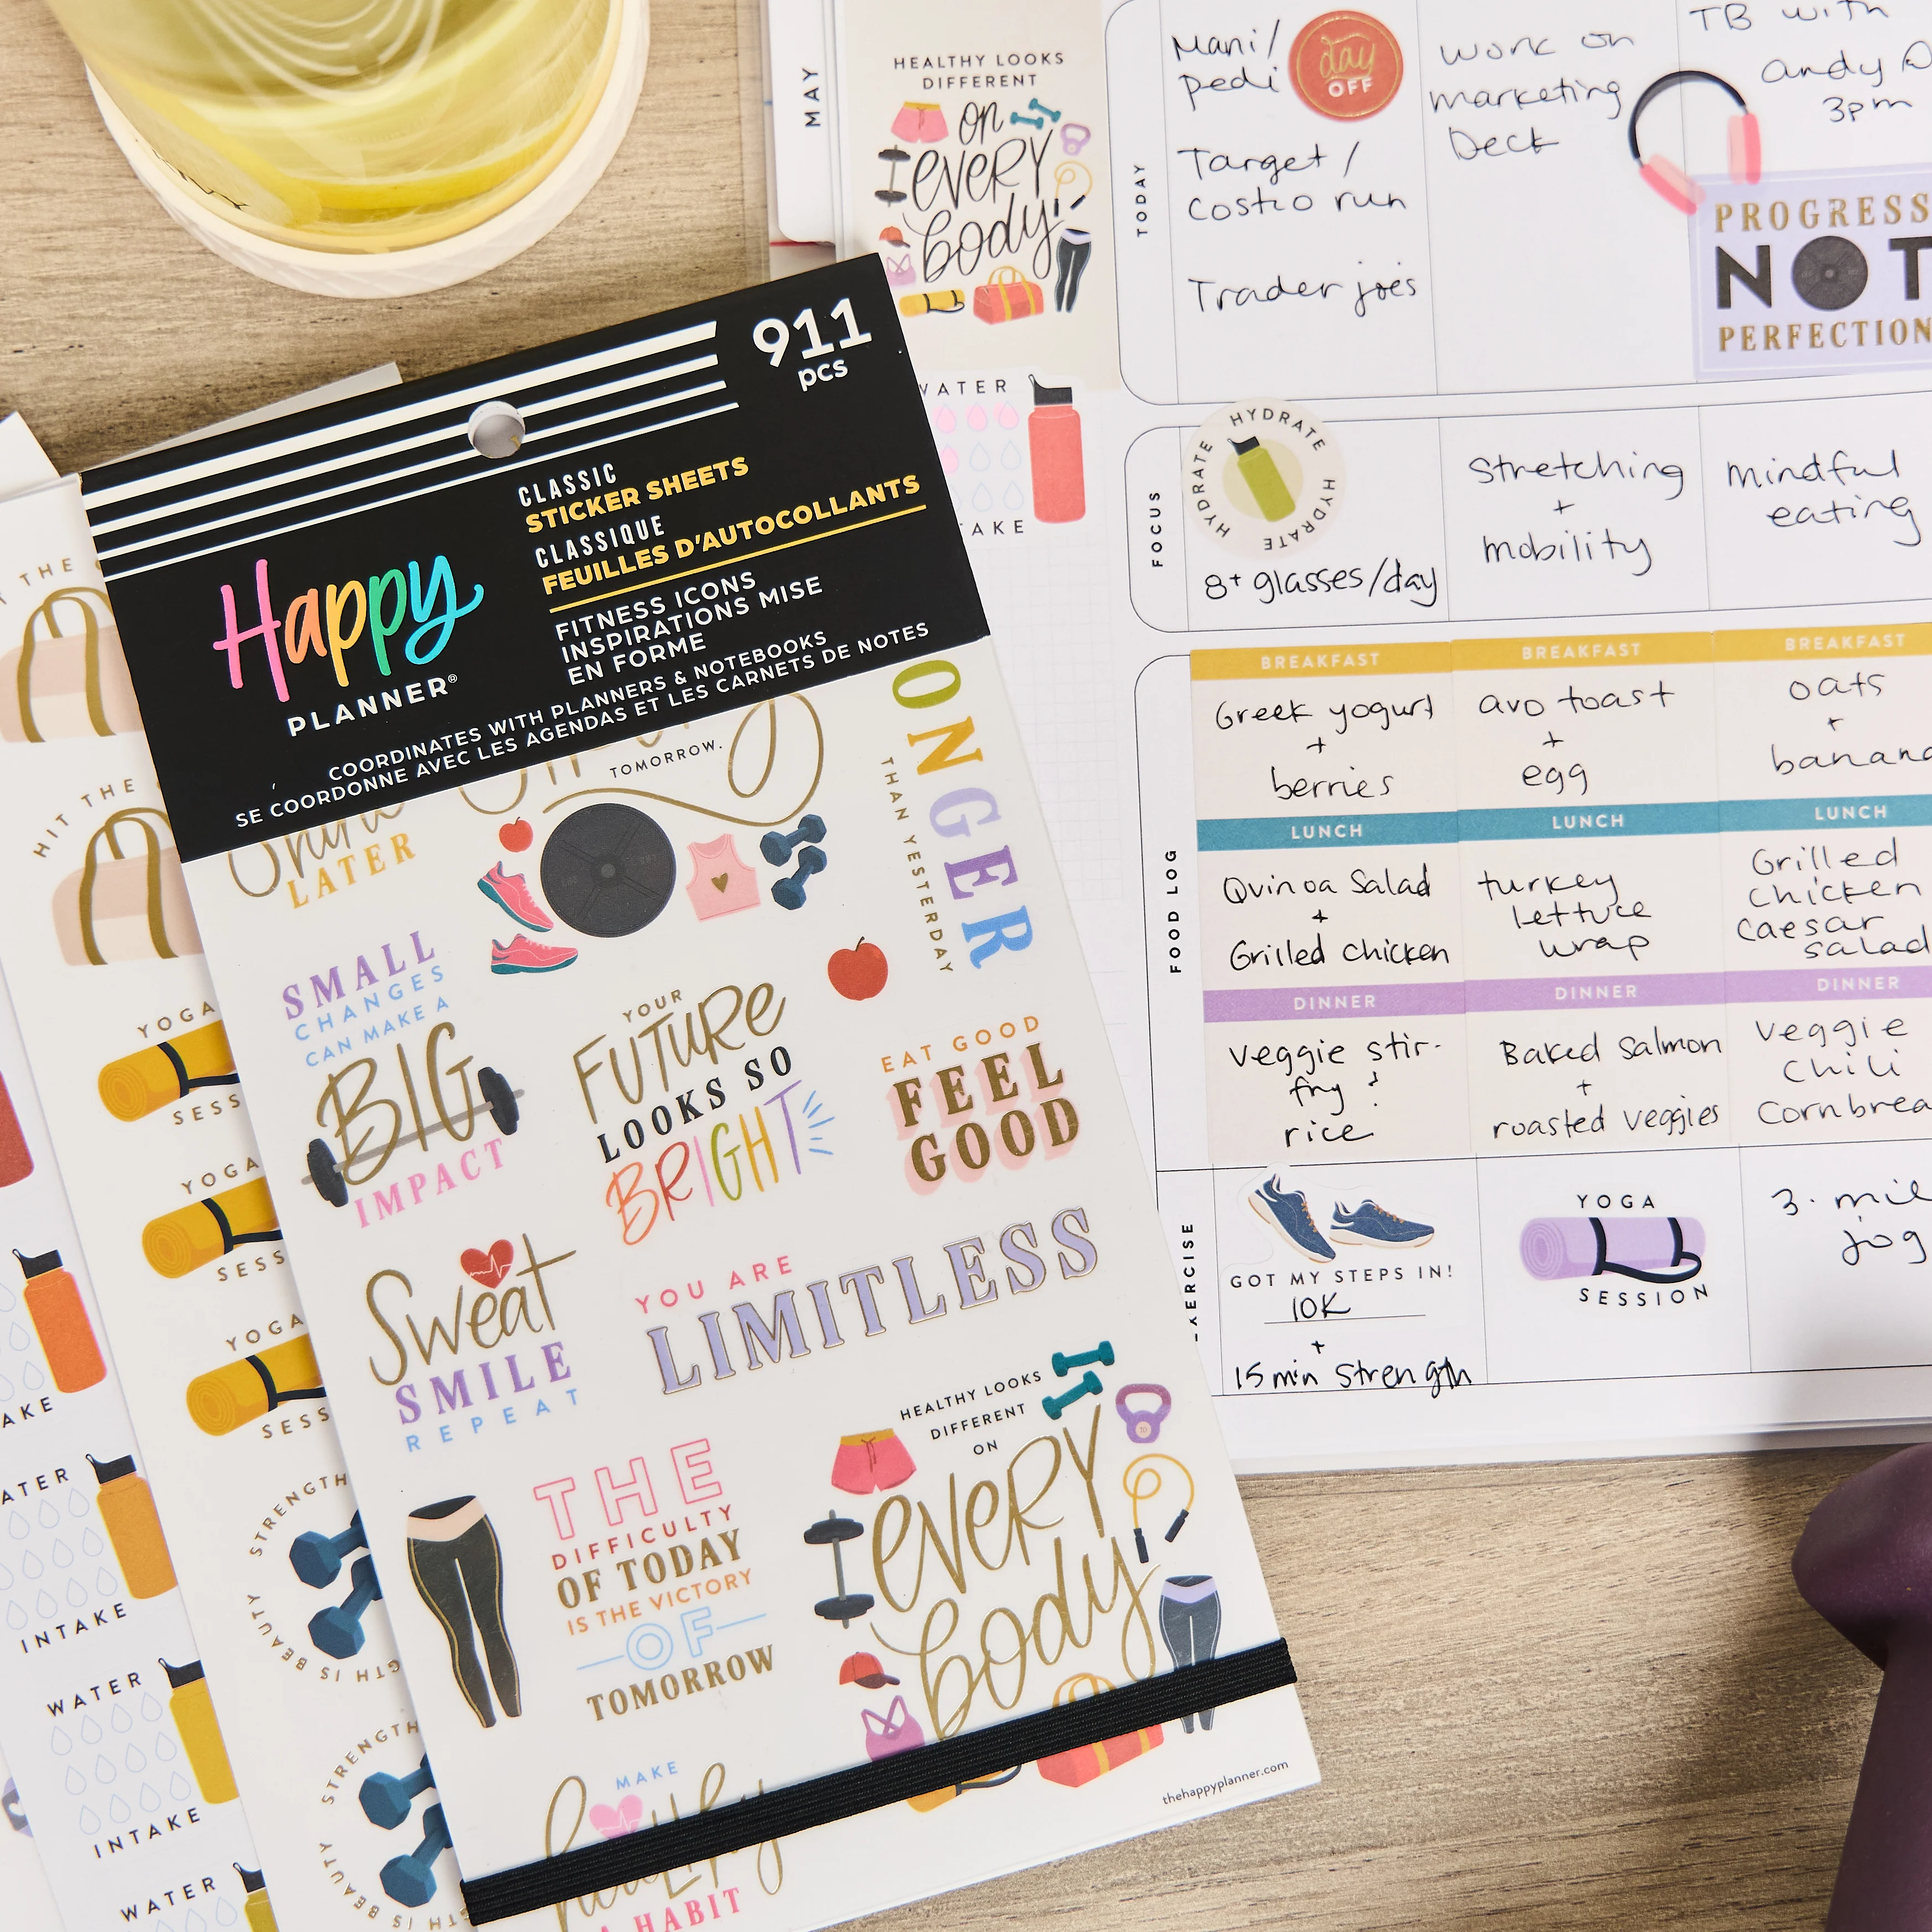 MAY
HEALTHY LOOKS
DIFFERENT
on
every
body
WATER
TAKE
TODAY
Mani/
pedi
day
OFF
Target /
Costco run
Trader joe's
Work on
marketing
Deck
TB with
andy @
3pm
PROGRESS
NOT
PERFECTION
FOCUS
HYDRATE HYDRATE HYDRATE
8+ glasses/day
Stretching
+
mobility
mindful
eating
FOOD LOG
BREAKFAST
Greek yogurt
+
berries
BREAKFAST
avo toast
+
egg
BREAKFAST
oats
+
banana
LUNCH
Quinoa Salad
+
Grilled Chicken
LUNCH
turkey
lettuce
wrap
LUNCH
Grilled
Chicken
Caesar
salad
DINNER
Veggie stir-
fry &
rice
DINNER
Baked Salmon
+
roasted veggies
DINNER
Veggie
Chili
Cornbrea
EXERCISE
GOT MY STEPS IN!
10K
+
15 min strength
YOGA
SESSION
3. mil
jog
911
pcs
CLASSIC
STICKER SHEETS
CLASSIQUE
FEUILLES D'AUTOCOLLANTS
FITNESS ICONS
INSPIRATIONS MISE
EN FORME
Happy
PLANNER®
COORDINATES WITH PLANNERS & NOTEBOOKS
SE COORDONNE AVEC LES AGENDAS ET LES CARNETS DE NOTES
LATER
TOMORROW.
ONGER
THAN YESTERDAY
SMALL
CHANGES
CAN MAKE A
BIG
IMPACT
YOUR
FUTURE
LOOKS SO
BRIGHT
EAT GOOD
FEEL
GOOD
Sweat
SMILE
REPEAT
YOU ARE
LIMITLESS
THE
DIFFICULTY
OF TODAY
IS THE VICTORY
OF
TOMORROW
HEALTHY LOOKS
DIFFERENT
ON
every
body
MAKE
healthy
A HABIT
thehappyplanner.com
THE
HIT THE
YOGA
SESS
YOGA
SESS
YOGA
SESS
STRENGTH
GTH IS BEAUTY
STRENGTH
GTH IS BEAUTY
AKE
ATER
INTAKE
WATER
INTAKE
WATER